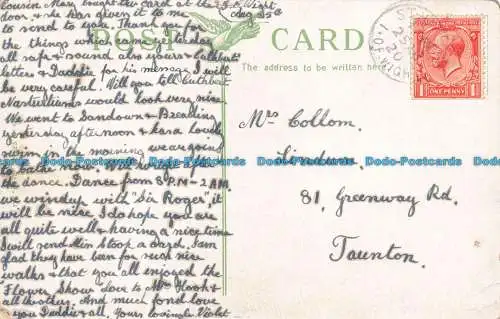 Cousin Mary bought this card at the
door, & she has given it to me
Aug 25th
to send to you. Thank you for
the things which came yesterday
all safe & sound also yours & Cuthbert
letters & Daddie for his message I will
be very careful. Will you tell Cuthbert
Nasturtiums would look very nice.
We went to Sandown & Breading
yesterday afternoon & had a lovely
swim in the morning we are going
to bathe now. Will write after
the dance. Dance from 8 P.M - 2 A.M.
we wind up with "Sir Roger" it
will be nice. I do hope you are
all quite well & having a nice time
I will send Min Stoop a card, I am
glad they have been for such nice
walks & that you all enjoyed the
Flower Show. Love to Mrs Hook &
all the others. And much fond love
you Daddie & all. Yours lovingly Violet
POST CARD
The address to be written here
Mrs Collom.
Lindum.
81, Greenway Rd,
Taunton.
POSTAGE REVENUE
ONE PENNY
I. OF WIGHT
Dodo-Postcards Dodo-Postcards Dodo-Postcards Dodo-Postcards Dodo-Postcards